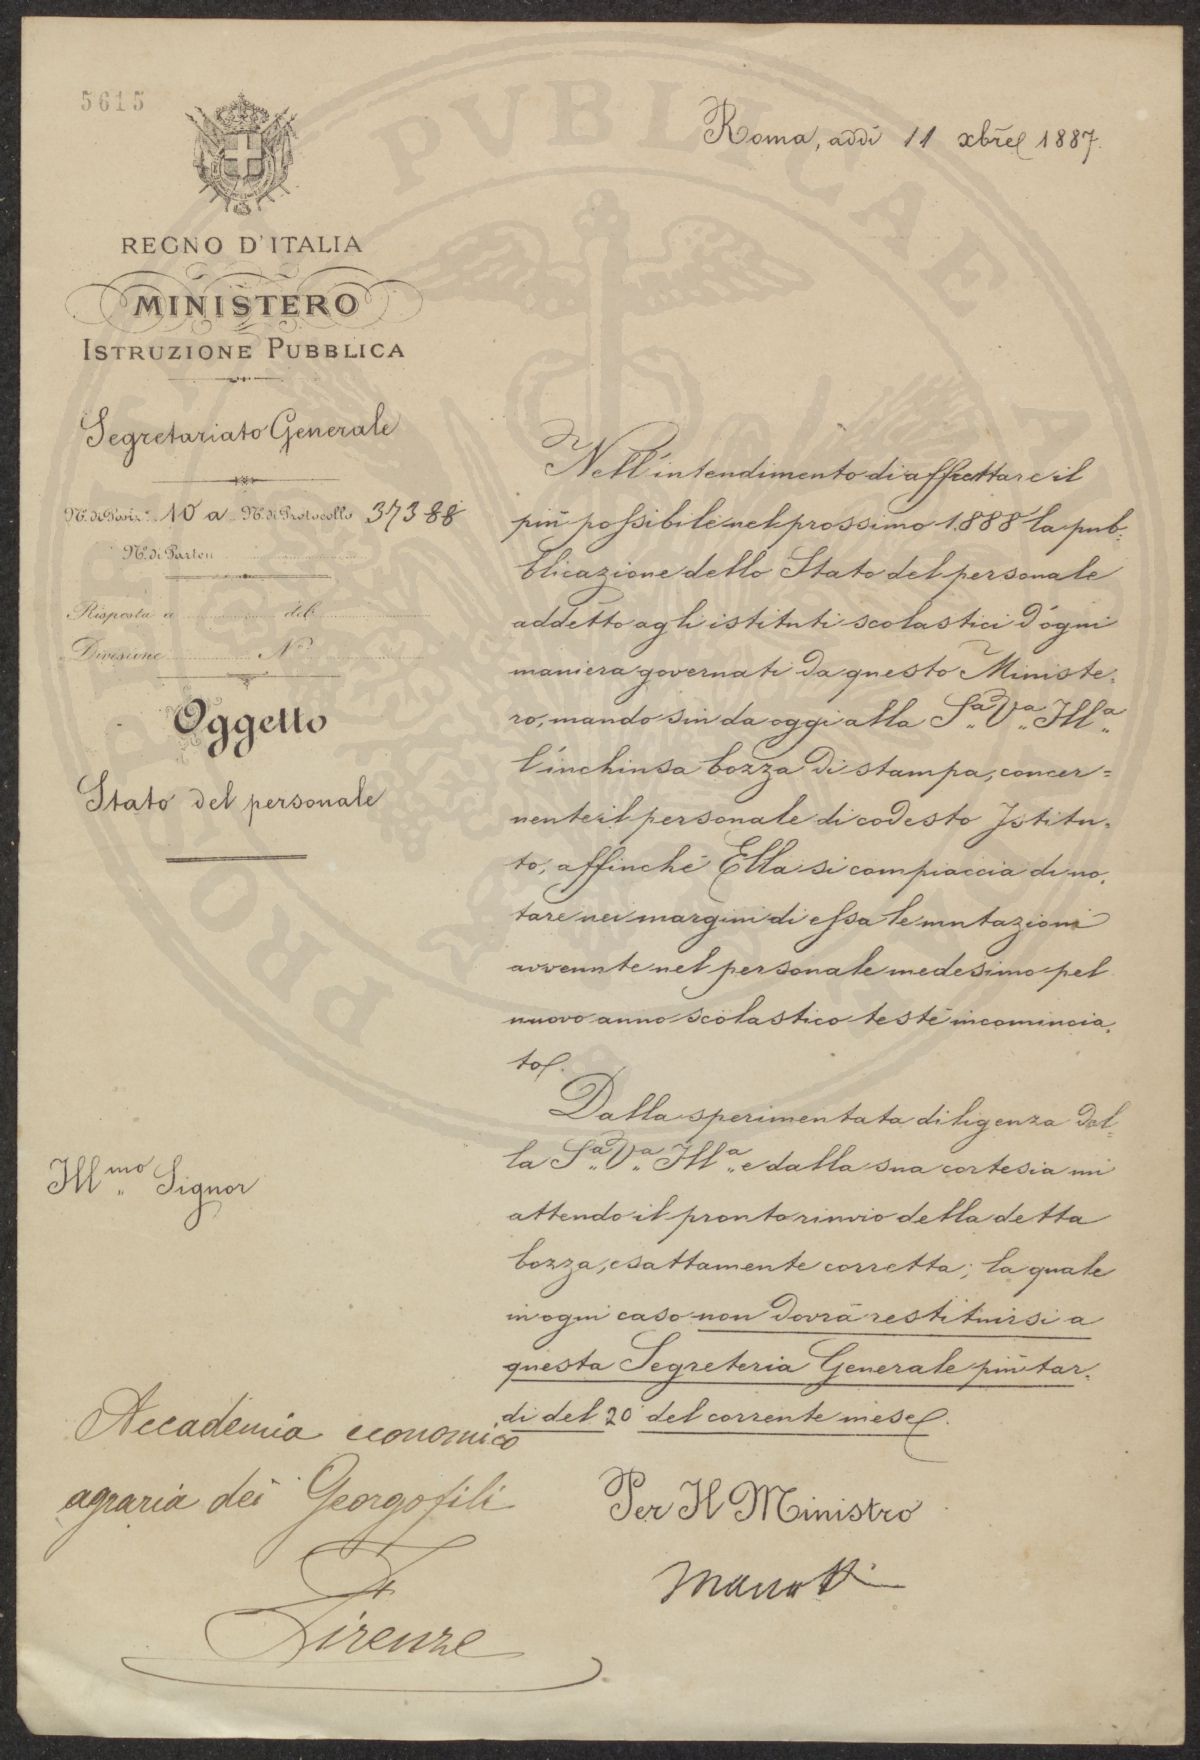 5615
Roma, addì 11 xbre 1887.
REGNO D'ITALIA
MINISTERO
ISTRUZIONE PUBBLICA
Segretariato Generale
N.º di Posiz.e 10 a N.º di Protocollo 37388
N.º di Parten
Risposta a del
Divisione N.º
Oggetto
Stato del personale
Nell'intendimento di affrettare il
più possibile nel prossimo 1888 la pub-
blicazione dello Stato del personale
addetto agli istituti scolastici d'ogni
maniera governati da questo Ministe-
ro, mando sin da oggi alla S.a V.a Ill.a
l'inchiusa bozza di stampa, concer-
nente il personale di codesto Istitu-
to, affinché Ella si compiaccia di no-
tare nei margini di essa le mutazioni
avvenute nel personale medesimo pel
nuovo anno scolastico testé incomincia-
to.
Dalla sperimentata diligenza del-
la S.a V.a Ill.a e dalla sua cortesia mi
attendo il pronto rinvio della detta
bozza, esattamente corretta; la quale
in ogni caso non dovrà restituirsi a
questa Segreteria Generale più tar-
di del 20 del corrente mese.
Ill.mo Signor
Accademia economico
agraria dei Georgofili
Firenze
Per Il Ministro
PVBLICAE